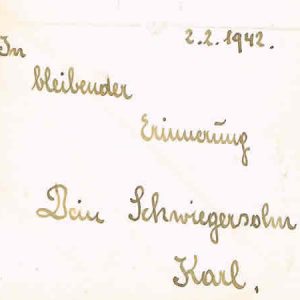 2.2.1942.
In
bleibender
Erinnerung
Dein Schwiegersohn
Karl.